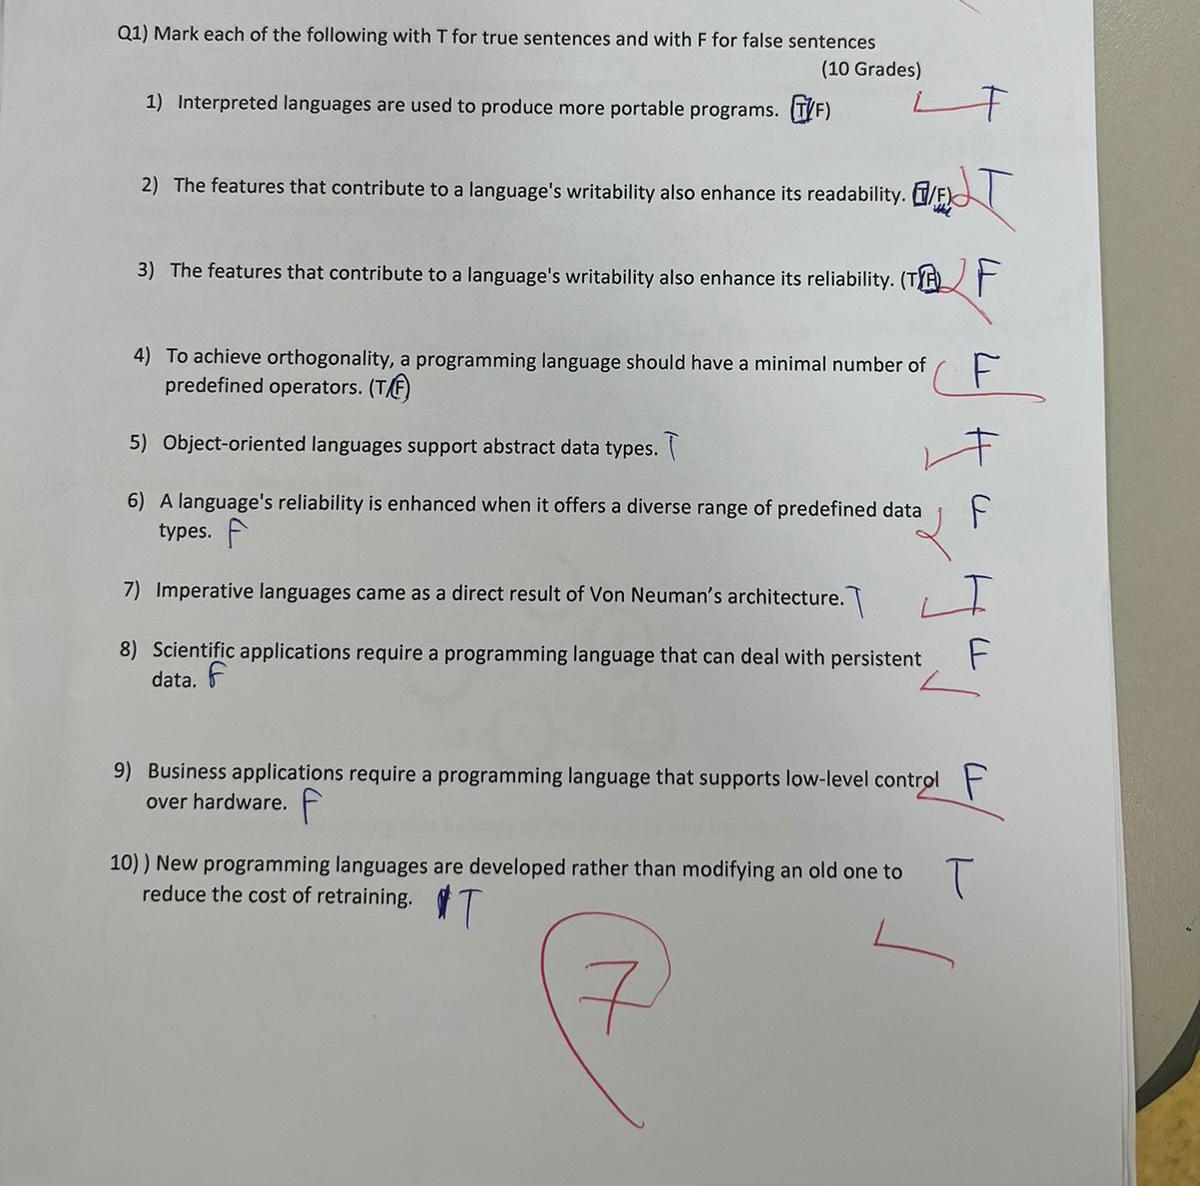 Q1) Mark each of the following with T for true sentences and with F for false sentences
(10 Grades)
1) Interpreted languages are used to produce more portable programs. (T/F) T
2) The features that contribute to a language's writability also enhance its readability. (T/F) T
3) The features that contribute to a language's writability also enhance its reliability. (T/F) F
4) To achieve orthogonality, a programming language should have a minimal number of F
predefined operators. (T/F)
5) Object-oriented languages support abstract data types. T T
6) A language's reliability is enhanced when it offers a diverse range of predefined data F
types. F
7) Imperative languages came as a direct result of Von Neuman's architecture. T T
8) Scientific applications require a programming language that can deal with persistent F
data. F
9) Business applications require a programming language that supports low-level control F
over hardware. F
10) ) New programming languages are developed rather than modifying an old one to T
reduce the cost of retraining. T
7